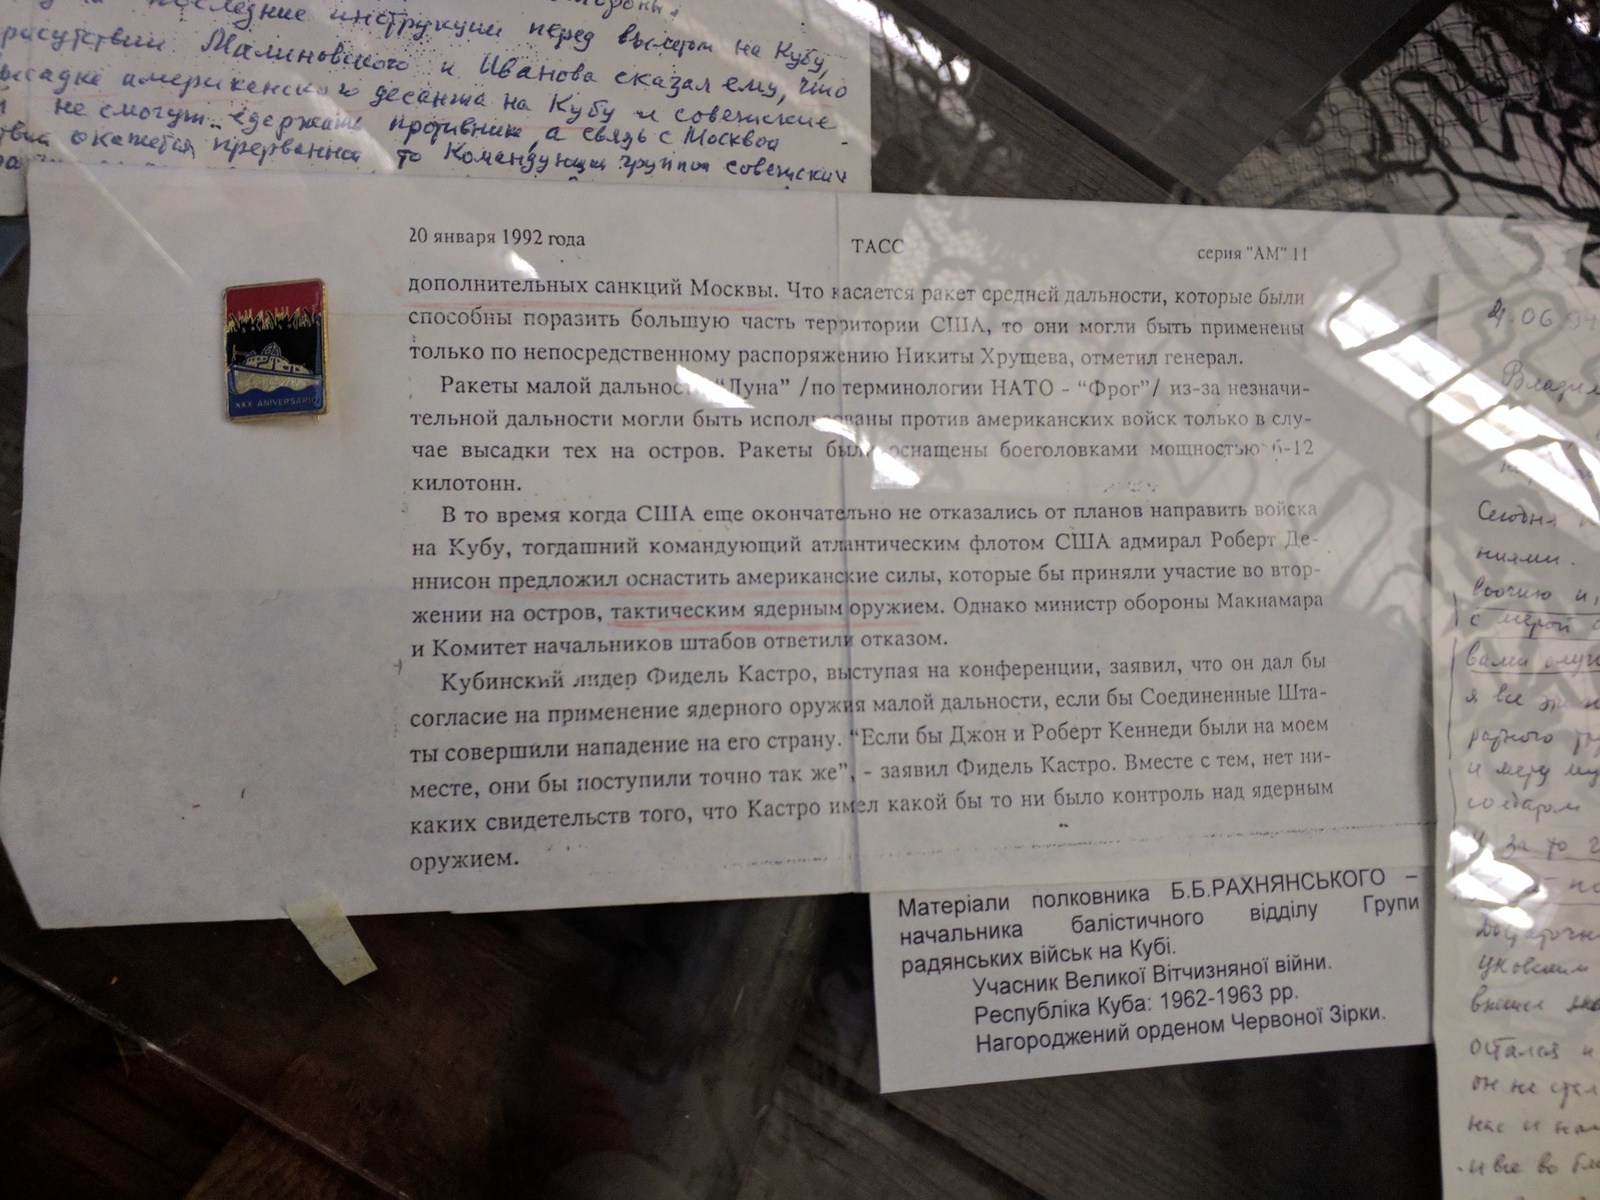 последние инструкции перед вылетом на Кубу,
Малиновского и Иванова сказал ему, что
американского десанта на Кубу и советские
не смогут сдержать противник, а связь с Москвой
окажется прерванной то Командующий группой советских
20 января 1992 года
ТАСС
серия "АМ" 11
дополнительных санкций Москвы. Что касается ракет средней дальности, которые были
способны поразить большую часть территории США, то они могли быть применены
только по непосредственному распоряжению Никиты Хрущева, отметил генерал.
Ракеты малой дальности “Луна” /по терминологии НАТО - “Фрог”/ из-за незначи-
тельной дальности могли быть использованы против американских войск только в слу-
чае высадки тех на остров. Ракеты были оснащены боеголовками мощностью 6-12
килотонн.
В то время когда США еще окончательно не отказались от планов направить войска
на Кубу, тогдашний командующий атлантическим флотом США адмирал Роберт Де-
ннисон предложил оснастить американские силы, которые бы приняли участие во втор-
жении на остров, тактическим ядерным оружием. Однако министр обороны Макнамара
и Комитет начальников штабов ответили отказом.
Кубинский лидер Фидель Кастро, выступая на конференции, заявил, что он дал бы
согласие на применение ядерного оружия малой дальности, если бы Соединенные Шта-
ты совершили нападение на его страну. “Если бы Джон и Роберт Кеннеди были на моем
месте, они бы поступили точно так же”, - заявил Фидель Кастро. Вместе с тем, нет ни-
каких свидетельств того, что Кастро имел какой бы то ни было контроль над ядерным
оружием.
XXX ANIVERSARIO
Матеріали полковника Б.Б.РАХНЯНСЬКОГО –
начальника балістичного відділу Групи
радянських військ на Кубі.
Учасник Великої Вітчизняної війни.
Республіка Куба: 1962-1963 рр.
Нагороджений орденом Червоної Зірки.
ниями.
с мерой
я все
и меру
за то
остался
он не
нас и